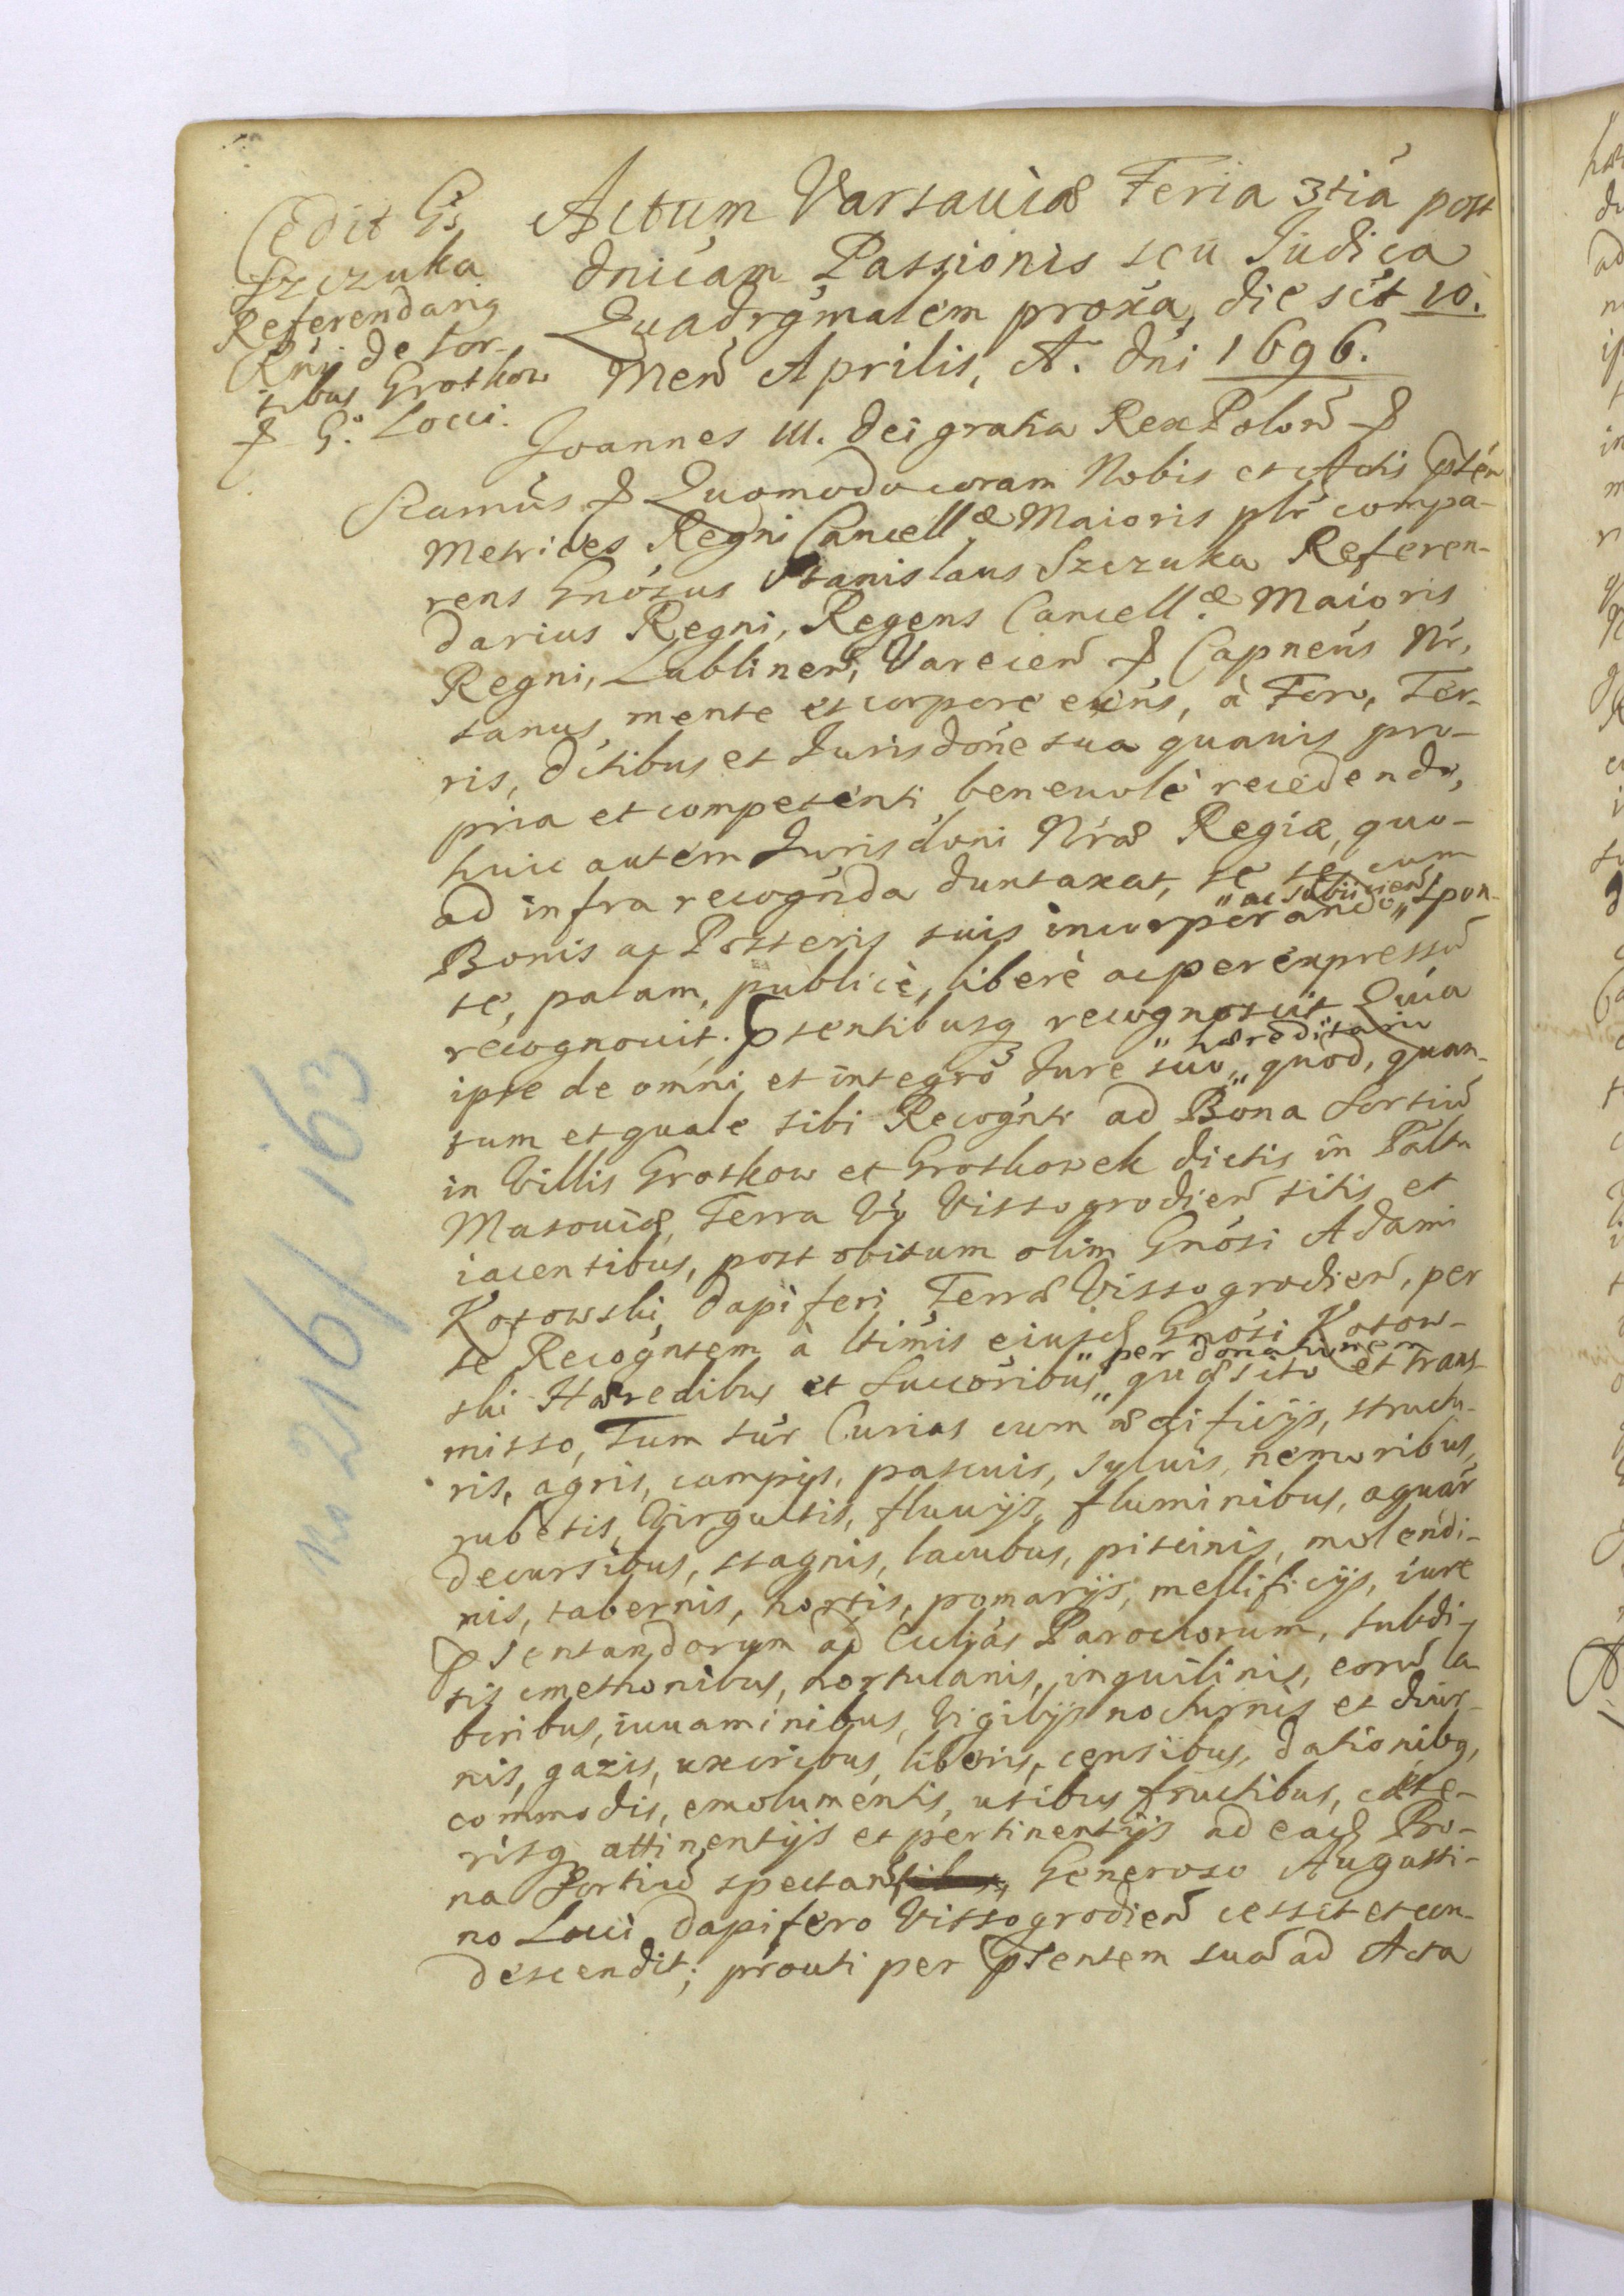 Cedit Gs
Szczuka
Referendari9
Rni de Sor-
tibus Grotkow
& G. Locci.
Actum Varsaviæ Feria 3tiá post
dnicam Passionis seu Judica
Quadrgmalem proxa, die sct 10.
Men Aprilis, A. dni 1696.
Joannes III. Dei gratia Rex Polon &
Scamus & Quomodo coram Nobis et Actis pten
Metrices Regni Cancellæ Maioris plr compa-
rens Gnosus Stanislaus Szczuka Referen-
darius Regni, Regens Cancellæ Maioris
Regni, Lublinen, Varecien & Capneus Nr,
sanus mente et corpore exns, à Foro, Ter-
ris, dctibus et Jurisdone sua quavis pro-
pria et competenti benevolè recedendo,
huic autem Jurisdoni Nræ Regiæ, quo-
ad infra recognda duntaxat, se se cum
Bonis ac Posteris suis incorporando „ac subiicien„ spon-
te, palam, publicè, liberè ac per expressu
recognovit. Psentibusq recognoscit Quia
ipse de omni et integro Jure suo „hæreditario„ quod, quan-
tum et quale sibi Recognti ad Bona Sortiu
in Villis Grotkow et Grotkowek dictis in Paltu
Masoviæ, Terra Vo Vissogrodien sitis et
iacentibus, post obitum olim Gnosi Adami
Kosowski Dapiferi Terræ Vissogrodien, per
se Recogntem à ltimis eiusd Gnosi Kosow-
ski Hæredibus et Succoribus „per donationem„ quæsito et trans-
misso, Tum sur Curias cum ædificijs, structu-
ris, agris, campis, pascuis, sylvis, nemoribus,
rubetis, Virgultis, fluvijs, fluminibus, aquar
decursibus, stagnis, lacubus, piscinis, molendi-
nis, tabernis, hortis, pomarijs, mellificijs, iure
Psentandorum ad Cclias Parochorum, subdi-
tis cmethonibus, hortulanis, inquilinis, eoru la
boribus, iuvaminibus, Vigilijs nocturnis et diur-
nis, gazis, uxoribus, liberis, censibus, dationibq,
commodis, emolumentis, usibus fructibus, cæte-
risq attinentijs et pertinentijs ad ead Bo-
na Sortiu spectan Generoso Augusti-
no Locci Dapifero Vissogrodien cessit et con-
descendit; prouti per Psentem sua ad Acta
No 216/163